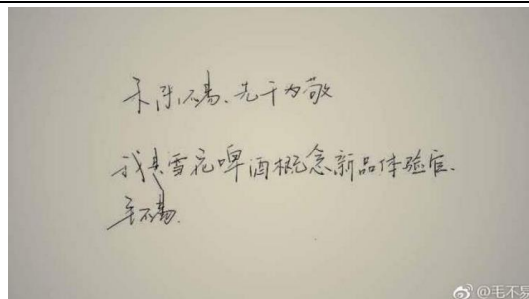 不求不易、先干为敬
我是雪花啤酒概念新品体验官.
毛不易.
@毛不易